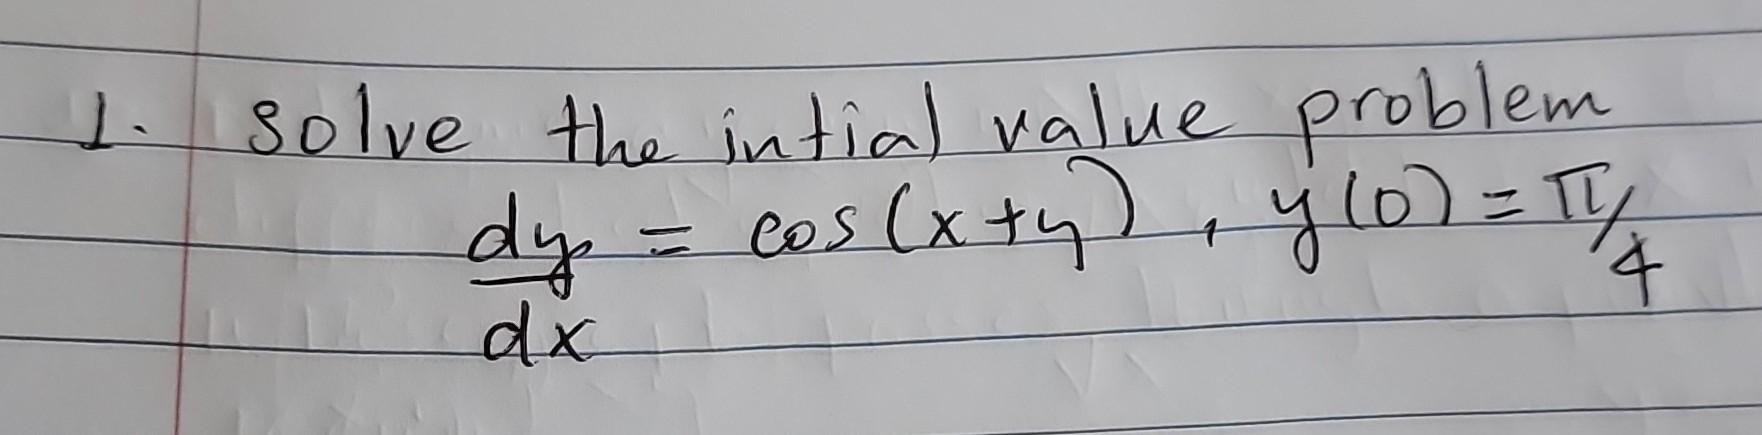 1. solve the intial value problem
dy/dx = cos(x+y), y(0) = π/4